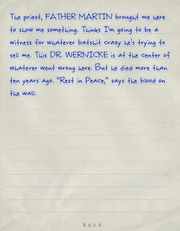 The priest, FATHER MARTIN brought me here
to show me something. Thinks I'm going to be a
witness for whatever batshit crazy he's trying to
sell me. This DR. WERNICKE is at the center of
whatever went wrong here. But he died more than
ten years ago. "Rest in Peace," says the blood on
the wall.
Back